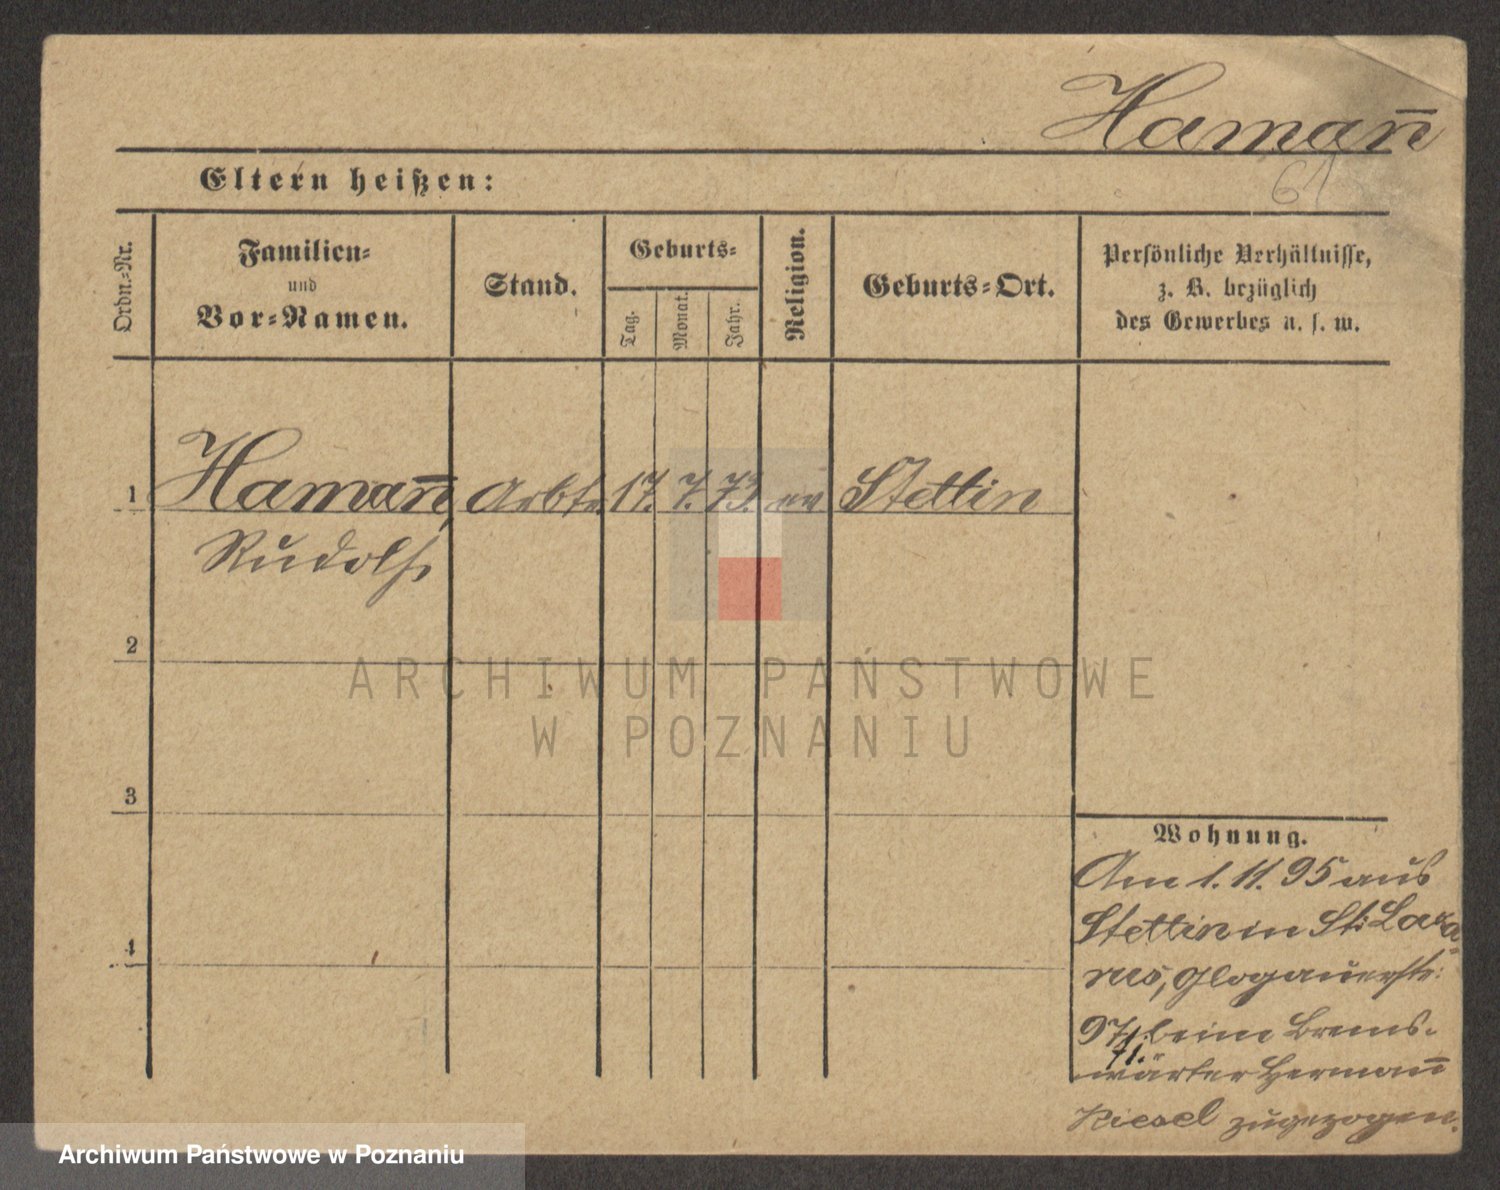 Hamañ
61
Eltern heißen:
Ordn.-Nr.
Familien-
und
Vor-Namen.
Stand.
Geburts-
Tag.
Monat.
Jahr.
Religion.
Geburts-Ort.
Persönliche Verhältnisse,
z. B. bezüglich
des Gewerbes u. s. w.
1 Hamañ, Arbtr. 17. 7. 73. ev Stettin
Rudolf
2
3
4
Wohnung.
Am 1. 11. 95 aus
Stettin in St. Laza-
rus, Glogauerstr.
97/I. beim Brems-
wärter Hermañ
Riesel zugezogen.
ARCHIWUM PAŃSTWOWE
W POZNANIU
Archiwum Państwowe w Poznaniu